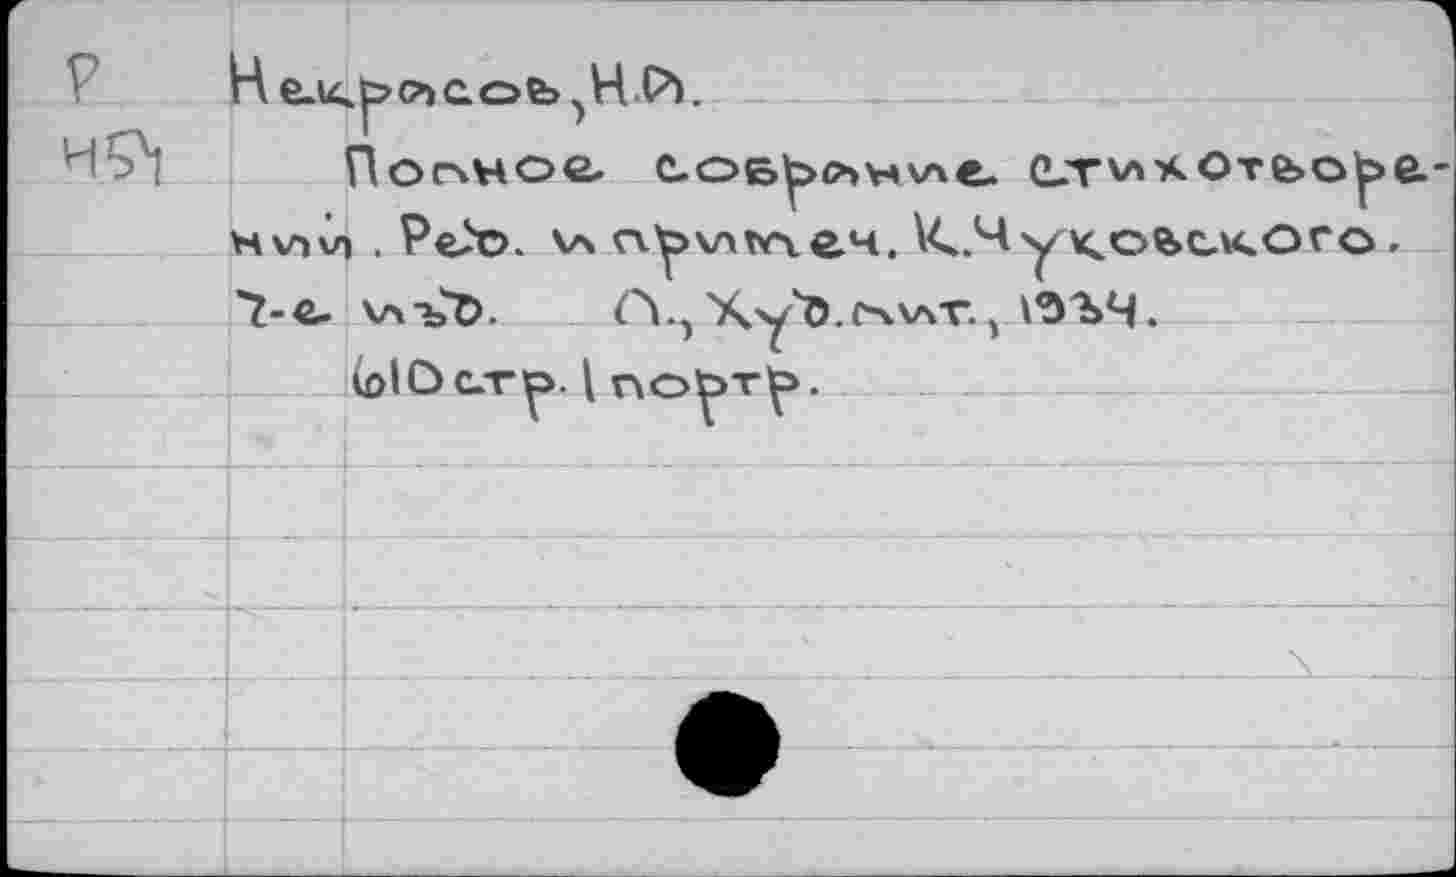 Р
Некрасовъ, Н.А.
Полное собрание стихотворе-
ний. Ред. и примеч. К.Чуковского.
7-е изд. Л., Худ.лит., 1934.
610 стр. 1 портр.